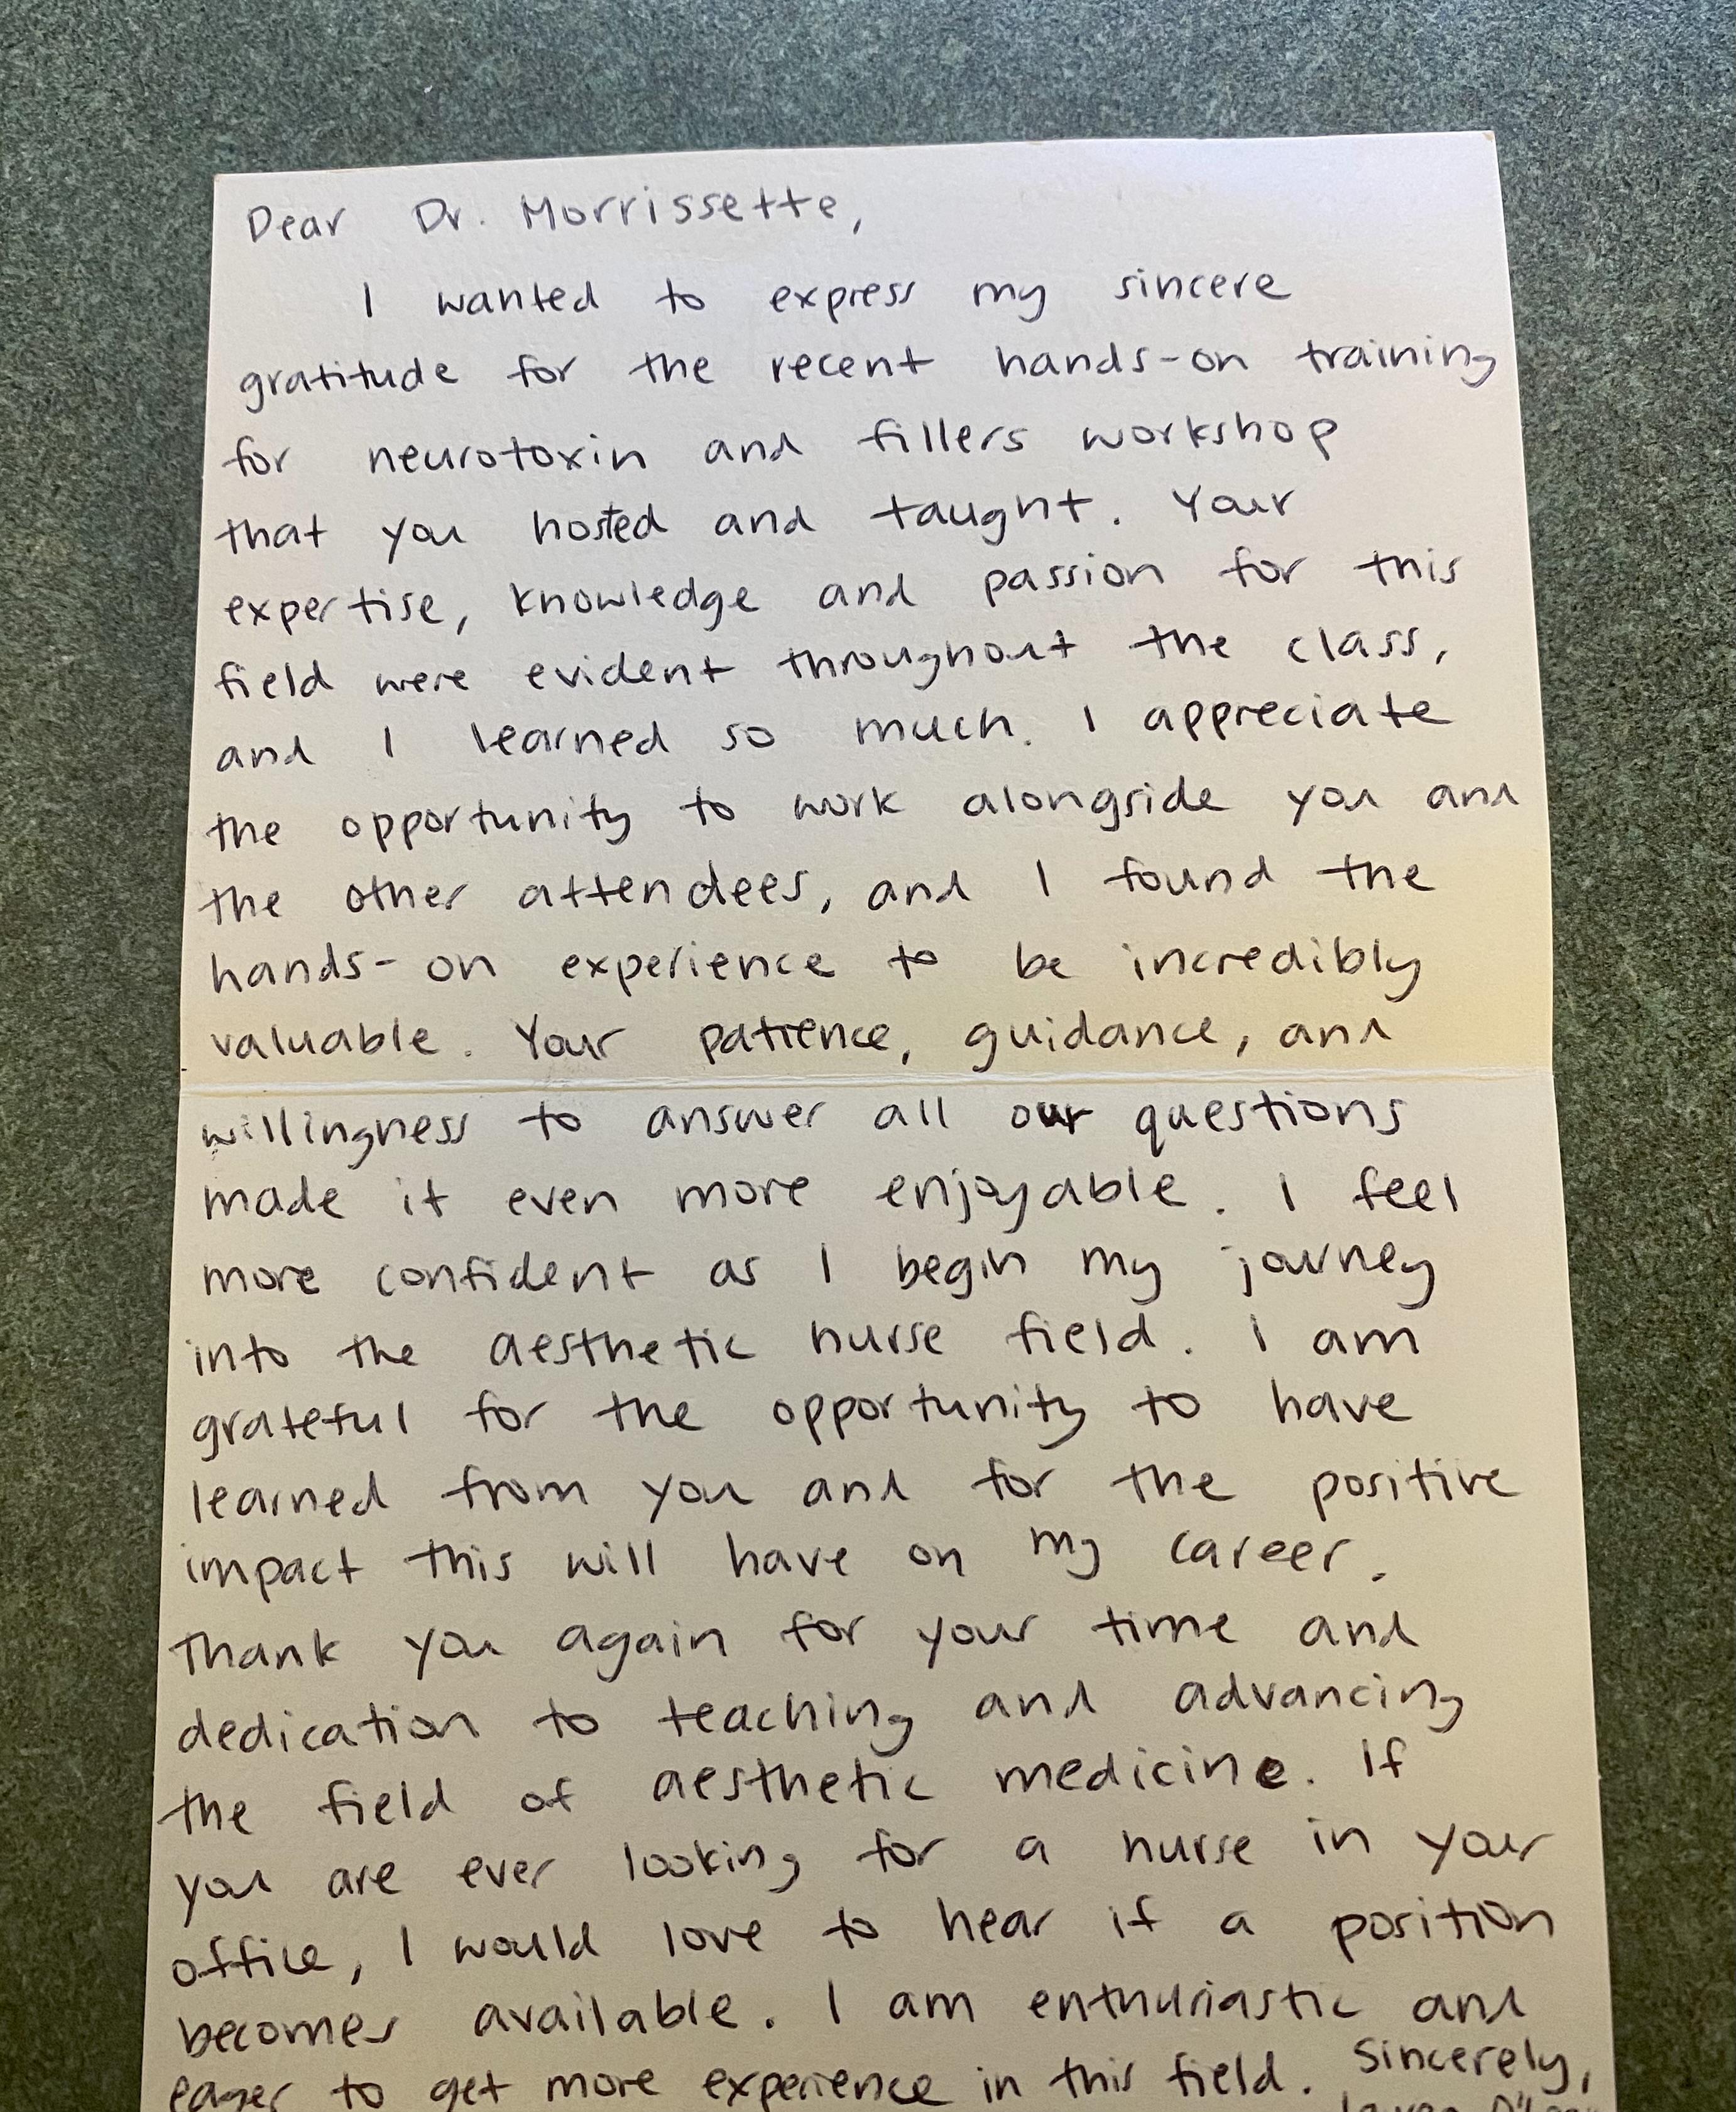 Dear Dr. Morrissette,
I wanted to express my sincere
gratitude for the recent hands-on training
for neurotoxin and fillers workshop
that you hosted and taught. Your
expertise, knowledge and passion for this
field were evident throughout the class,
and I learned so much. I appreciate
the opportunity to work alongside you and
the other attendees, and I found the
hands-on experience to be incredibly
valuable. Your patience, guidance, and
willingness to answer all our questions
made it even more enjoyable. I feel
more confident as I begin my journey
into the aesthetic nurse field. I am
grateful for the opportunity to have
learned from you and for the positive
impact this will have on my career.
Thank you again for your time and
dedication to teaching and advancing
the field of aesthetic medicine. If
you are ever looking for a nurse in your
office, I would love to hear if a position
becomes available. I am enthusiastic and
eager to get more experience in this field. Sincerely,